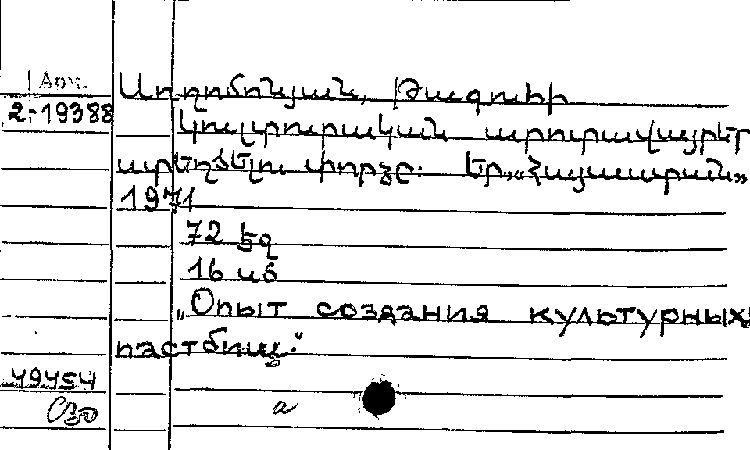 Արխ.
2-19388
Սողոմոնյան, Թագուհի
Կուլտուրական արոտավայրեր
ստեղծելու փորձը: Եր., «Հայաստան»
1971
72 էջ
16 սմ
„Опыт создания культурных
пастбищ."
49454
a